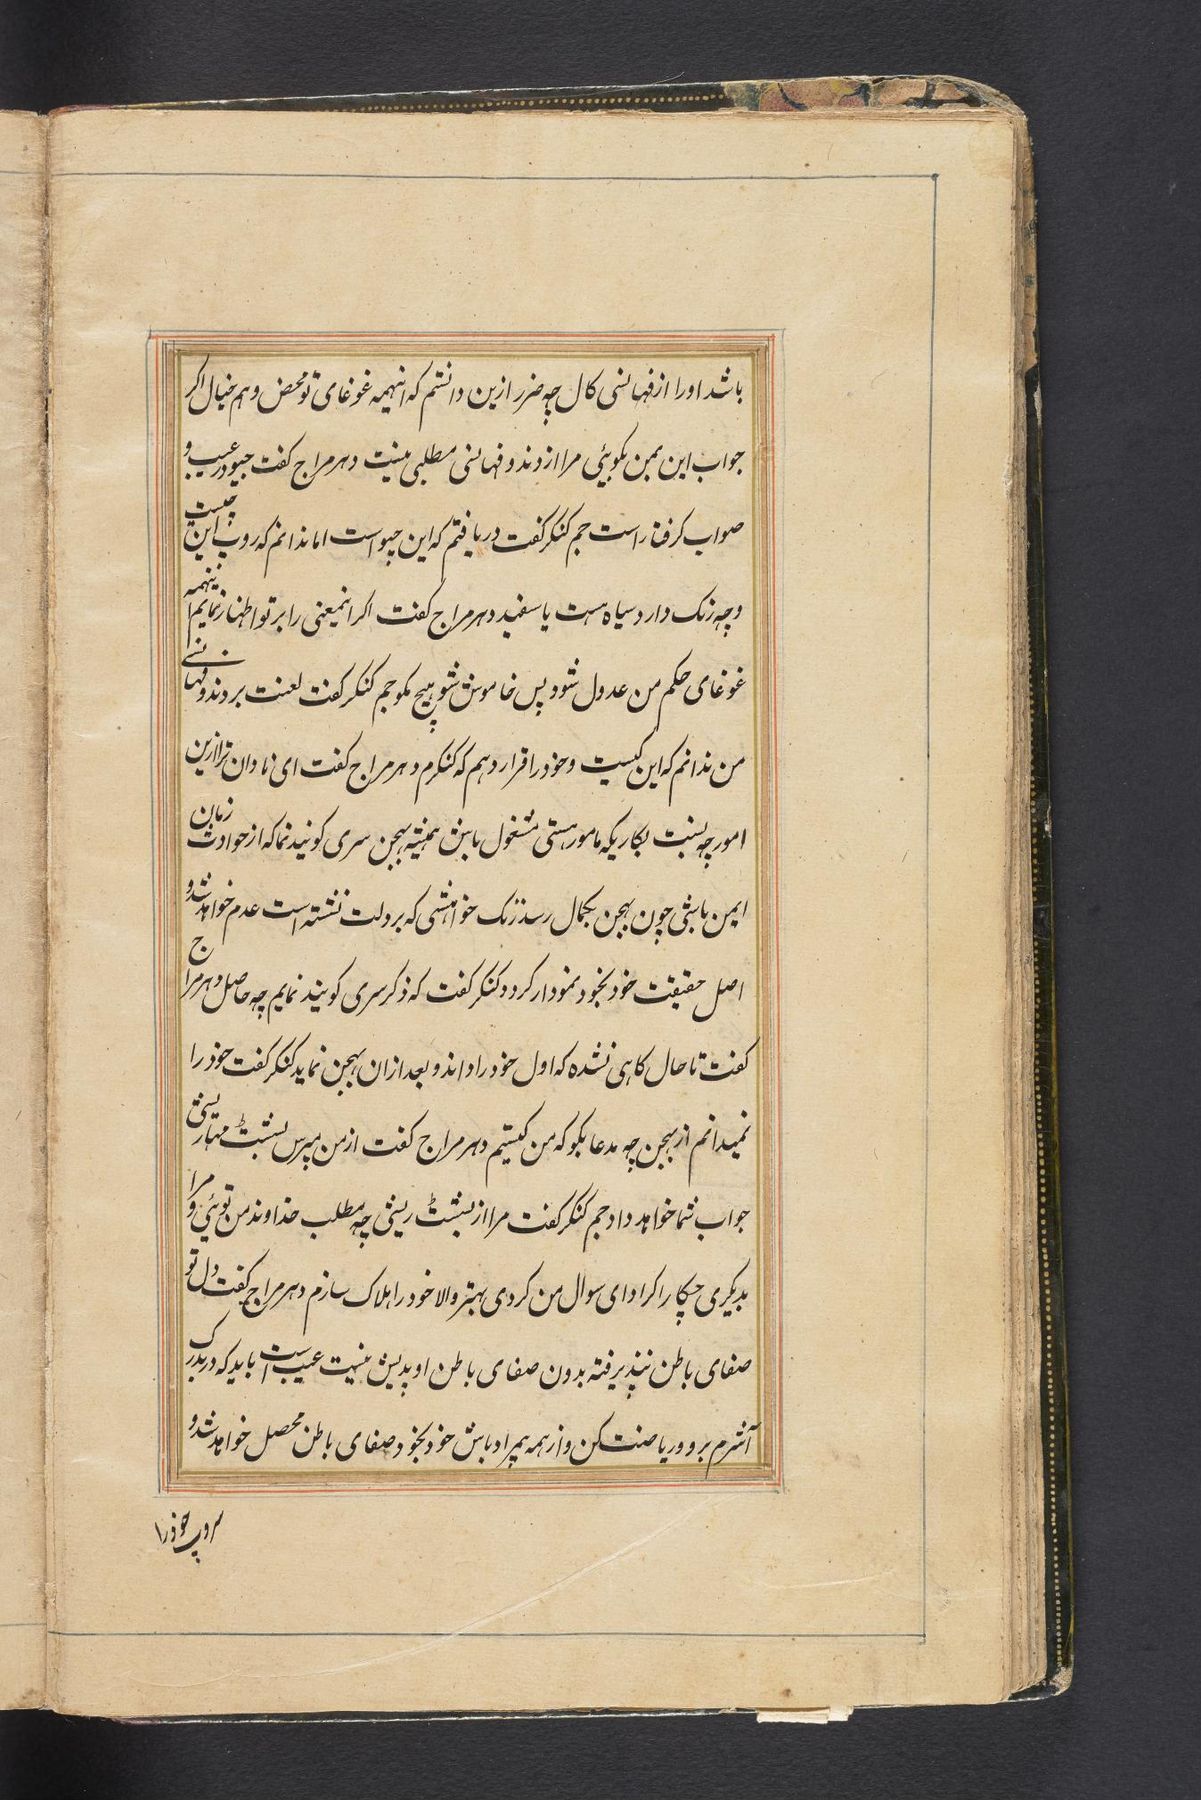 باشد اورا از فهانسی کال چه ضرر ازین دانستم که اینهمه غوغای تو محض وهم خیال اکر
جواب این بمن بکوئی مرا از دند و فهانسی مطلبی نیست دهرمراج کفت جیو در عیب و
صواب کرفتار است جم کنکر کفت دریافتم که این جیو است اما ندانم که روپ این چیست
و چه رنک دارد سیاه هست یا سفید دهرمراج کفت اکر اینمعنی را بر تو اظهار نمایم اینهمه
غوغای حکم من عدول شود پس خاموش شو هیچ مکو جم کنکر کفت لعنت بر دند و فهانسی
من ندانم که این کیست و خود را قرار دهم که کنکرم دهرمراج کفت ای نادان ترا ازین
امور چه نسبت بکاریکه مامور هستی مشغول باش همیشه بهجن سری کوبند نما که از حوادث زمان
ایمن باشی چون بهجن بکمال رسد زنک خواهشی که بر دلت نشسته است عدم خواهد شد و
اصل حقیقت خود بخود نمودار کردد کنکر کفت که ذکر سری کوبند نمایم چه حاصل دهرمراج
کفت تا حال کاهی نشده که اول خود را داند و بعد ازان بهجن نماید کنکر کفت خود را
نمیدانم از بهجن چه مدعا بکو که من کیستم دهرمراج کفت از من مپرس بششت مهاریشی
جواب شما خواهد داد جم کنکر کفت مرا از بششت ریشی چه مطلب خداوند من توئی و مرا
بدیکری چکار اکر ادای سوال من کردی بهتر والا خود را هلاک سازم دهرمراج کفت دل تو
صفای باطن نپذیرفته بدون صفای باطن اوپدیش نیست عیب است باید که در بدرک
آشرم برو و ریاضت کن و از همه بمراد باش خود بخود صفای باطن محصل خواهد شد و
سروپ خود را